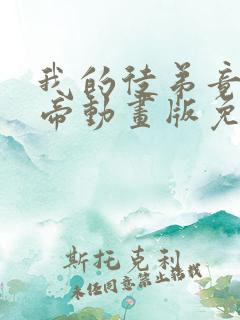 我的徒弟竟
帝動畫版免
斯托克利
未经同意禁止转载